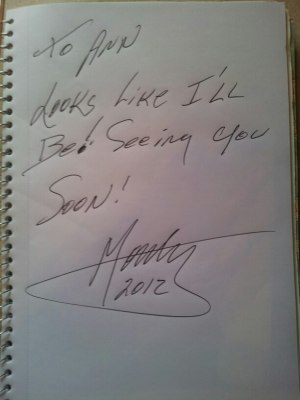 To Ann
Looks Like I'll
Be! Seeing you
Soon!
2012